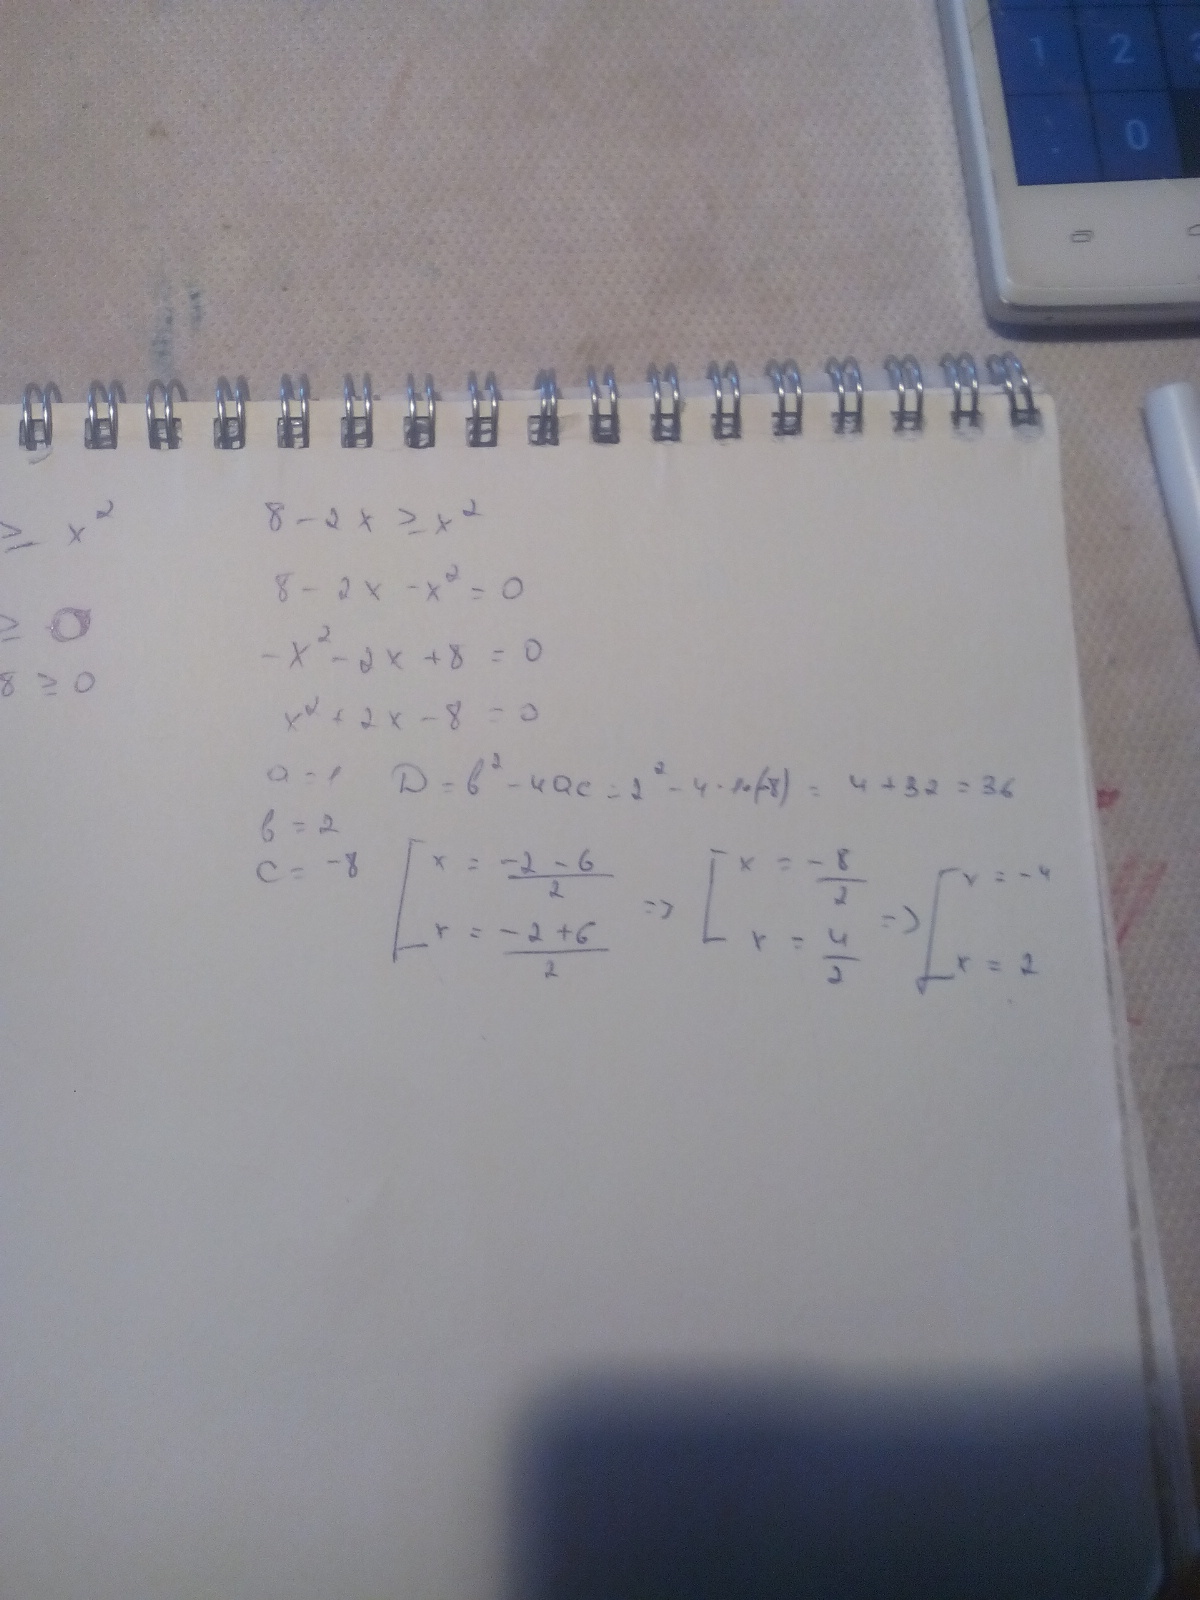 1 2
0
≥ x²
≥ 0
8 ≥ 0
8 - 2x ≥ x²
8 - 2x - x² = 0
-x² - 2x + 8 = 0
x² + 2x - 8 = 0
a = 1 D = b² - 4ac = 2² - 4·1·(-8) = 4 + 32 = 36
b = 2
c = -8
[ x = (-2 - 6)/2 => [ x = -8/2 => [ x = -4
x = (-2 + 6)/2 x = 4/2 x = 2